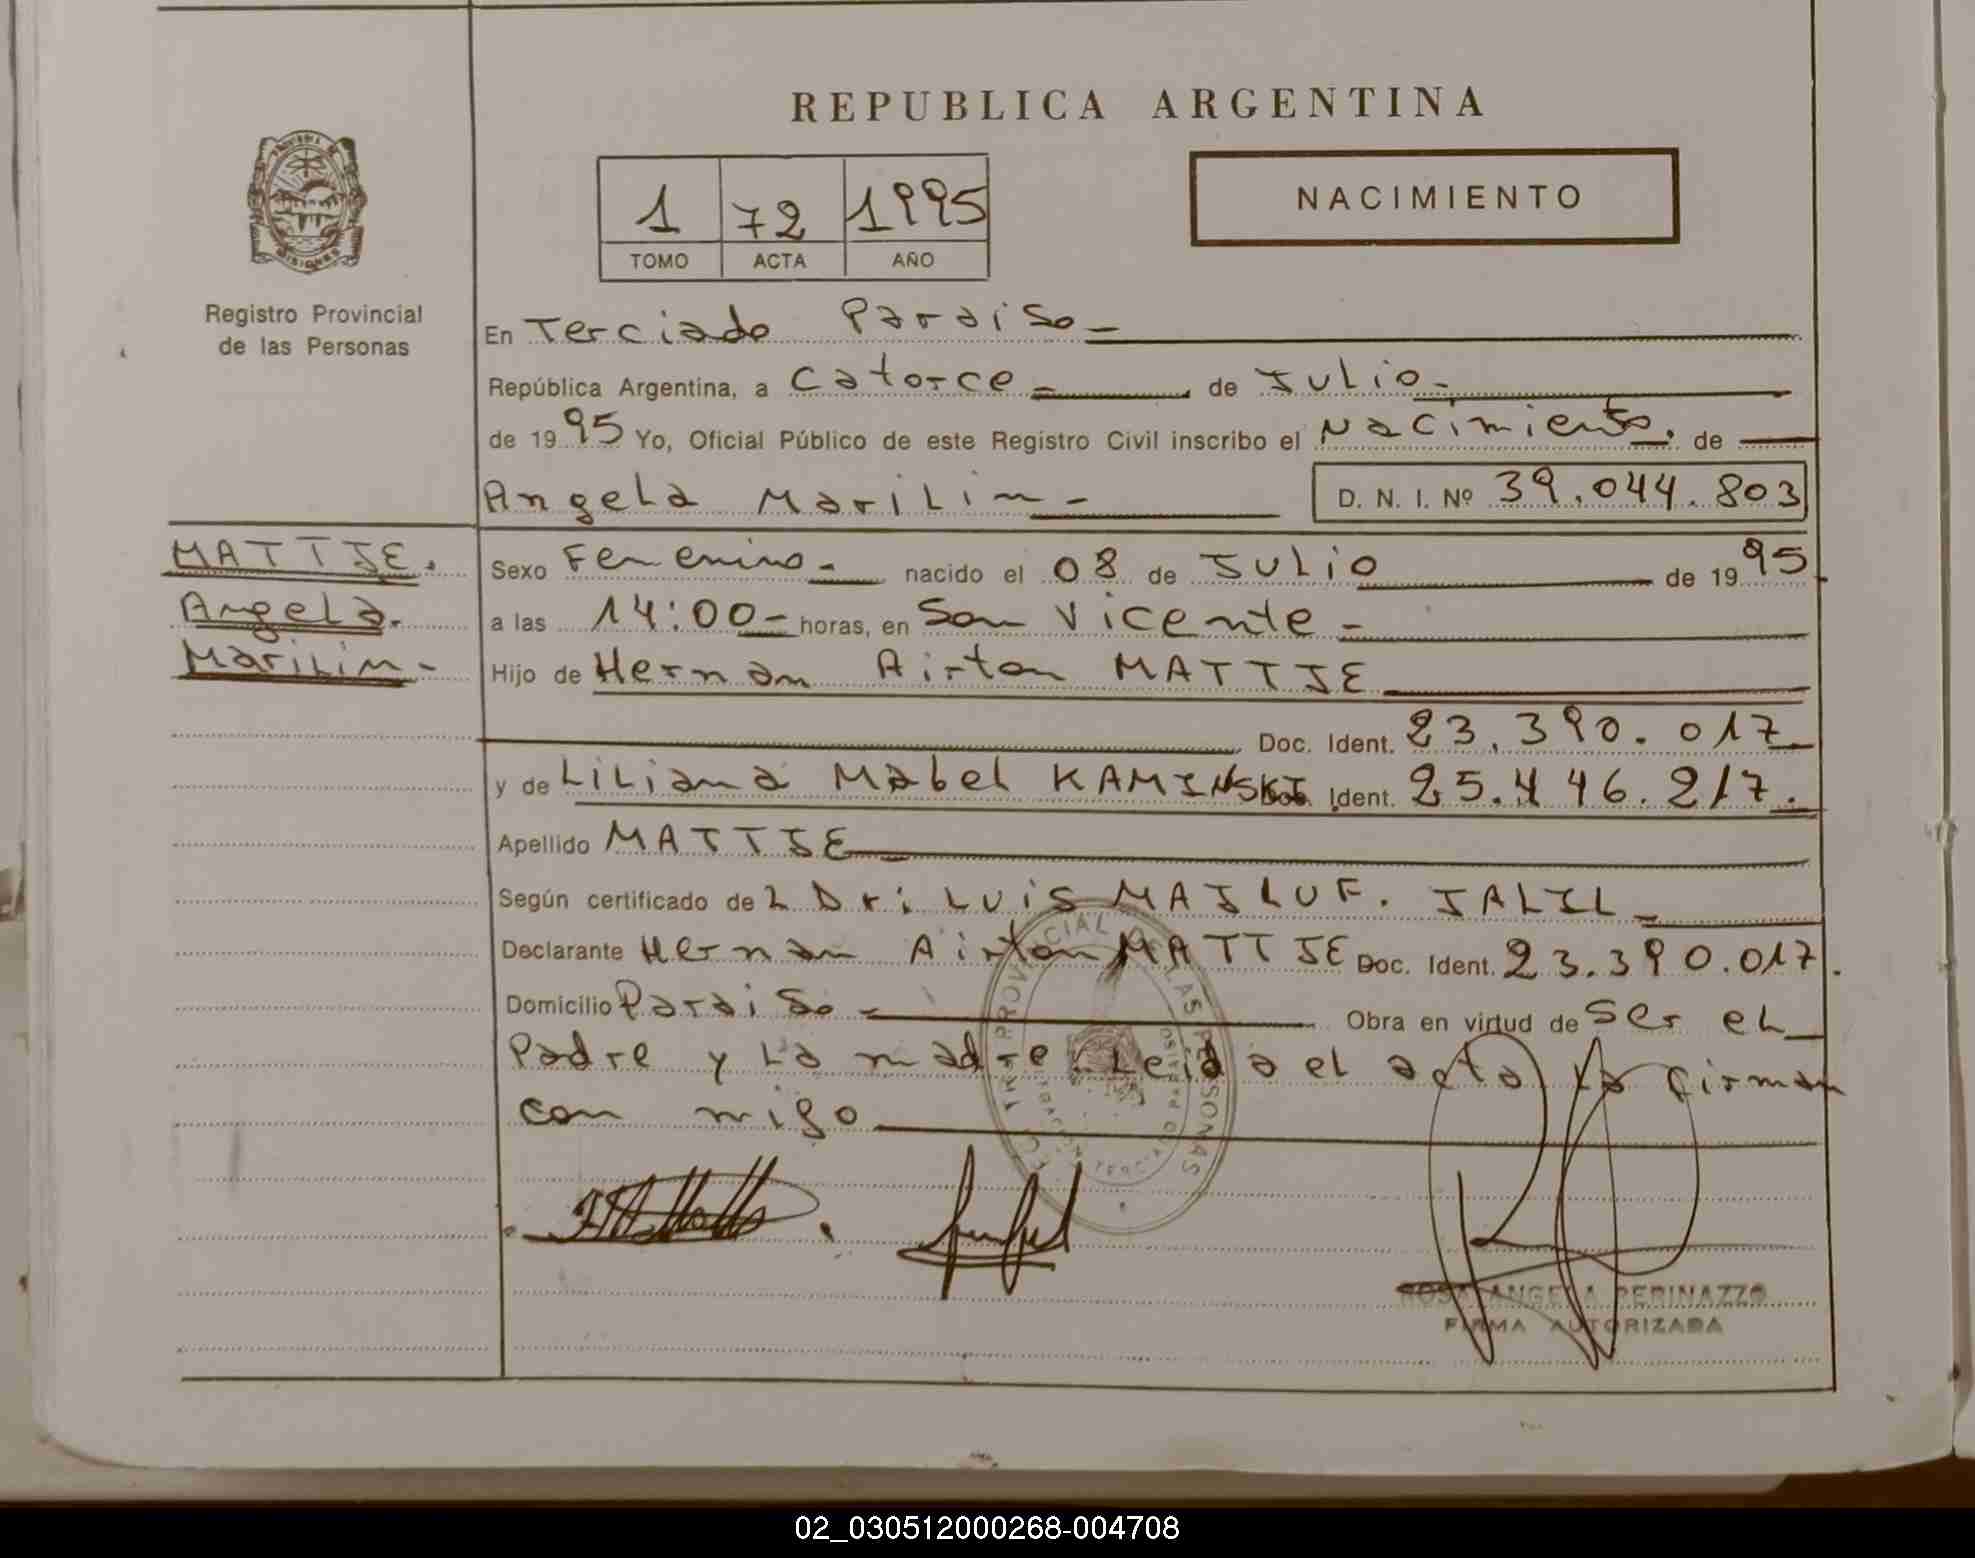 REPUBLICA ARGENTINA
NACIMIENTO
1 72 1995
TOMO ACTA AÑO
Registro Provincial
de las Personas
En Terciado Paraiso
República Argentina, a Catorce de Julio
de 1995 Yo, Oficial Público de este Registro Civil inscribo el Nacimiento. de
Angela Marilin D. N. I. Nº 39.044.803
MATTJE.
Angela.
Marilin-
Sexo Femenino nacido el 08 de Julio de 1995
a las 14:00 horas, en San Vicente
Hijo de Hernan Airton MATTJE
Doc. Ident. 23.390.017
y de Liliana Mabel KAMINSKI Doc. Ident. 25.446.217.
Apellido MATTJE
Según certificado de L Dr: Luis MAILUF. JALIL
Declarante Hernan Airton MATTJE Doc. Ident. 23.390.017.
Domicilio Paraiso Obra en virtud de ser el
Padre y La madre Leida el acta La firman
con migo
ROSA ANGELA PERINAZZO
FIRMA AUTORIZADA
02_030512000268-004708